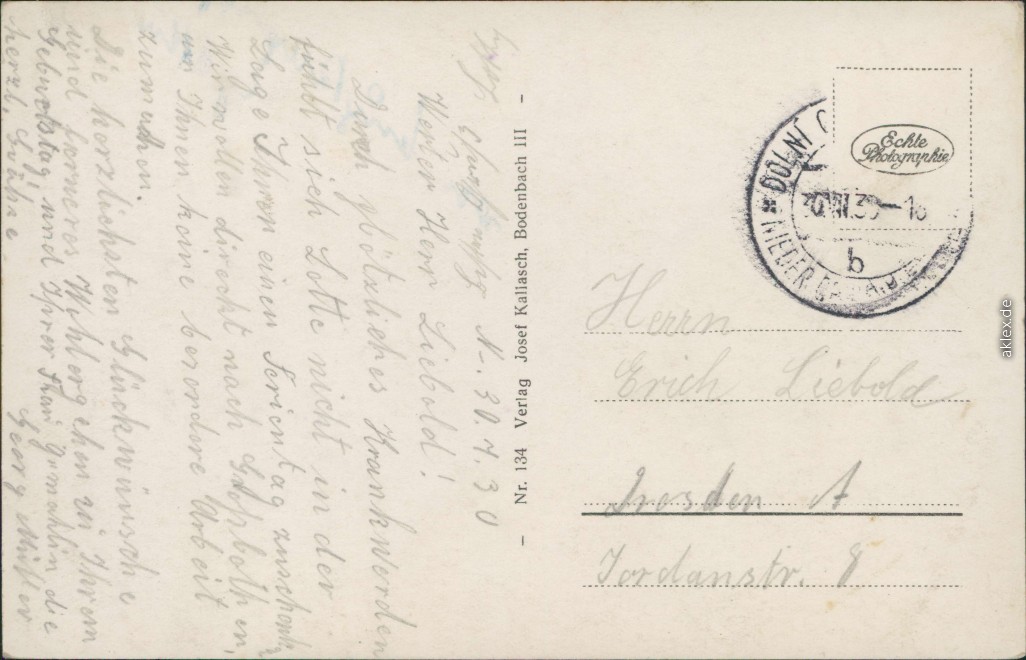 N. 30.7.30
Werter Herr Liebold!
Durch plötzliches Krankwerden
fühlt sich Lotte nicht in der
Lage Ihnen einen Ferientag zuschenk.
Wir wolln direkt nach
um Ihnen keine besondere Arbeit
zumachen.
Die herzlichsten Glückwünsche
und ferneres Wohlergehen zu Ihrem
Geburtstag und Ihrer Frau Gemahlin die
herzl. Grüße.
Georg Müller
- Nr. 134 Verlag Josef Kallasch, Bodenbach III -
Echte
Photographie
DOLNI
30.VII.30-18
b
NIEDER
Herrn
Erich Liebold
Dresden A
Jordanstr. 8
aklex.de